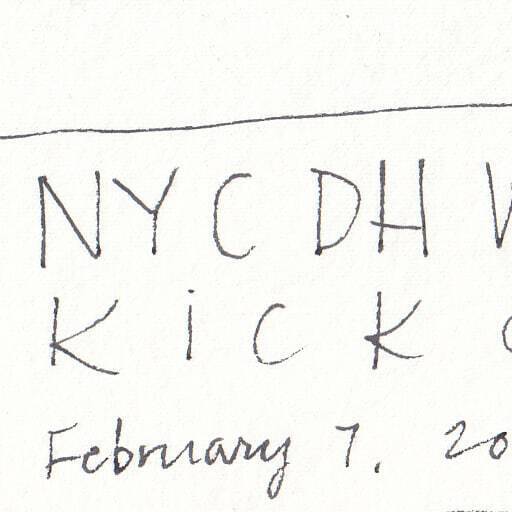 NYC DH
KiCK
February 7, 20